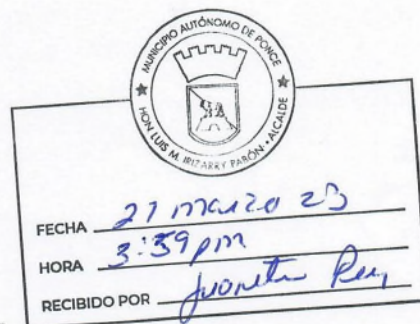 MUNICIPIO AUTÓNOMO DE PONCE
HON LUIS M. IRIZARRY PABÓN • ALCALDE
FECHA 27 marzo 23
HORA 3:59 pm
RECIBIDO POR